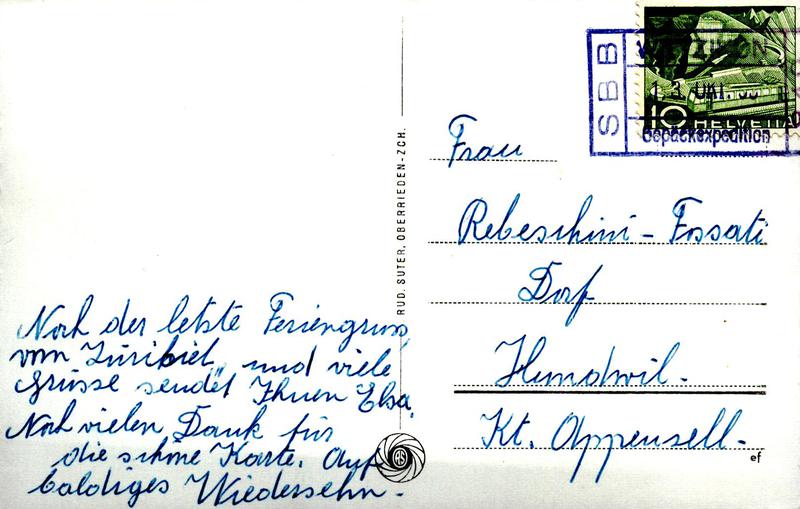 Noch der letzte Feriengruss
vom Züribiet, und viele
Grüsse sendet Ihnen Elsa.
Noch vielen Dank für
die schöne Karte. Auf
baldiges Wiedersehn.
RUD. SUTER, OBERRIEDEN-ZCH.
SBB
13. OKT.
Gepäckexpedition
10 HELVETIA
Frau
Rebeschini - Fossati
Dorf
Hundwil.
Kt. Appenzell.
ef